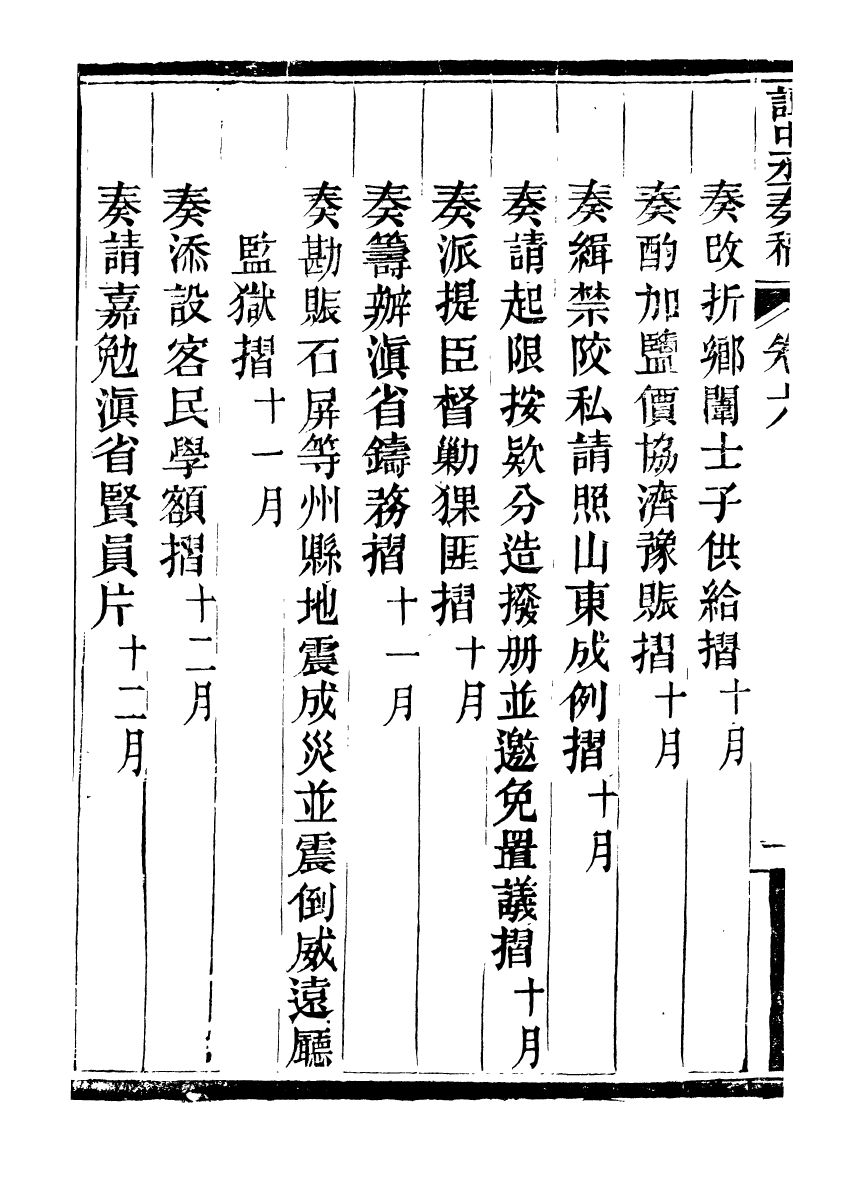 譚中丞奏稿 卷六 一
奏改折鄉闈士子供給摺十月
奏酌加鹽價協濟豫賑摺十月
奏緝禁陜私請照山東成例摺十月
奏請起限按款分造撥册並邀免置議摺十月
奏派提臣督勦猓匪摺十月
奏籌辦滇省鑄務摺十一月
奏勘賬石屏等州縣地震成災並震倒威遠廳
監獄摺十一月
奏添設客民學額摺十二月
奏請嘉勉滇省賢員片十二月